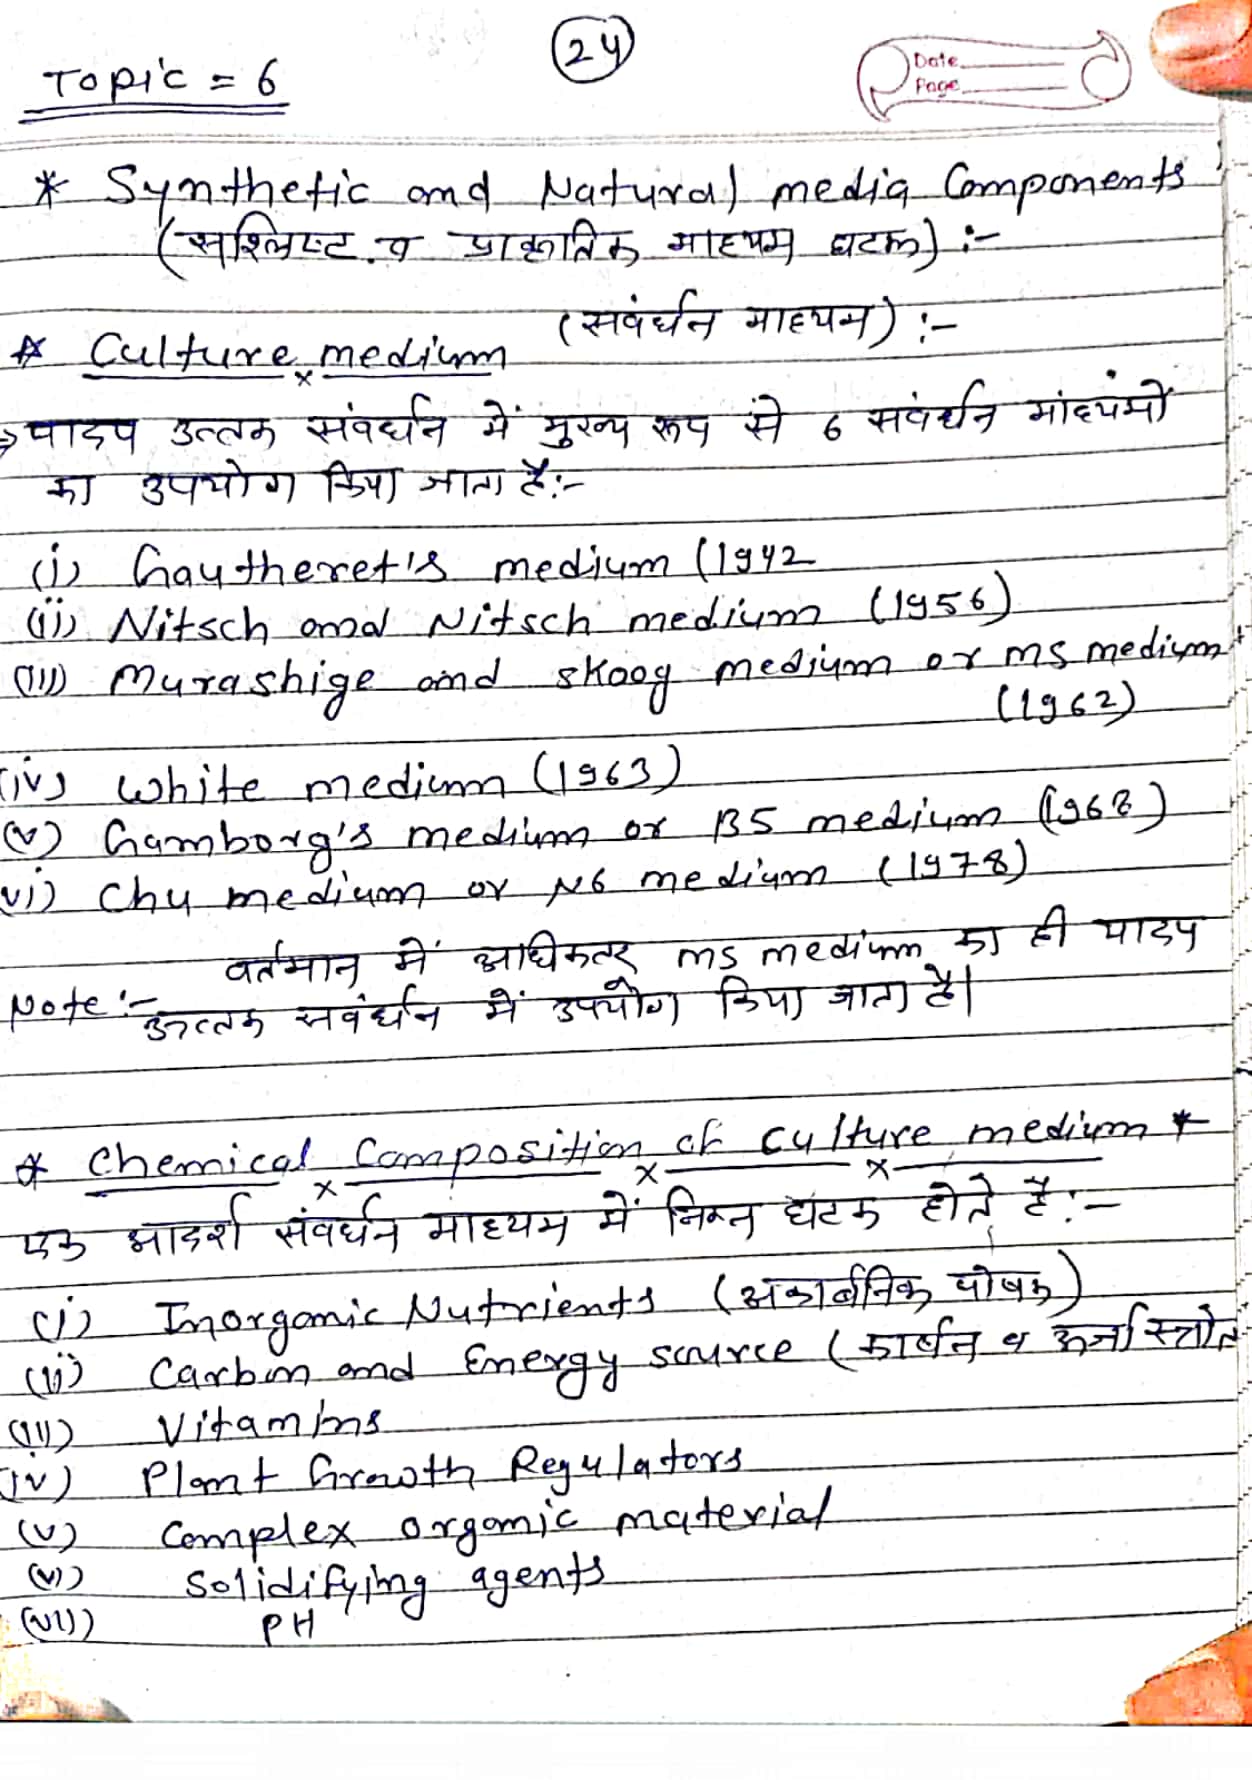 24
Date
Page
Topic = 6
* Synthetic and Natural media Components
(सश्लिष्ट व प्राकृतिक माध्यम घटक) :-
(संवर्धन माध्यम) :-
* Culture medium
→ पादप उत्तक संवर्धन में मुख्य रूप से 6 संवर्धन माध्यमों
का उपयोग किया जाता है:-
(i) Gautheret's medium (1942
(ii) Nitsch and Nitsch medium (1956)
(iii) Murashige and skoog medium or ms medium
(1962)
(iv) White medium (1963)
(v) Gamborg's medium or B5 medium (1968)
vi) Chu medium or N6 medium (1978)
वर्तमान में अधिकतर ms medium का ही पादप
Note :- ऊत्तक संवर्धन में उपयोग किया जाता है।
* Chemical Composition of Culture medium *
एक आदर्श संवर्धन माध्यम में निम्न घटक होते है:-
(i) Inorganic Nutrients (अकार्बनिक पोषक)
(ii) Carbon and Energy source (कार्बन व ऊर्जा स्त्रोत
(iii) Vitamins
(iv) Plant Growth Regulators
(v) Complex organic material
(vi) Solidifying agents
(vii) PH